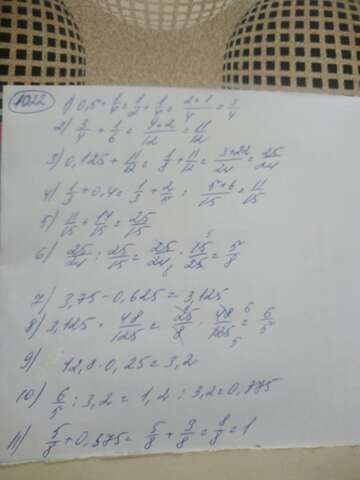 1022
1) 0,5+1/4=1/2+1/4=(2+1)/4=3/4
2) 3/4+1/6=(9+2)/12=11/12
3) 0,125+11/12=1/8+11/12=(3+22)/24=25/24
4) 1/3+0,4=1/3+2/5=(5+6)/15=11/15
5) 11/15+14/15=25/15
6) 25/24:25/15=25/24·15/25=5/8
7) 3,75-0,625=3,125
8) 3,125·48/125=25/8·48/125=6/5
9) 12,8·0,25=3,2
10) 6/5:3,2=1,2:3,2=0,375
11) 5/8+0,375=5/8+3/8=8/8=1